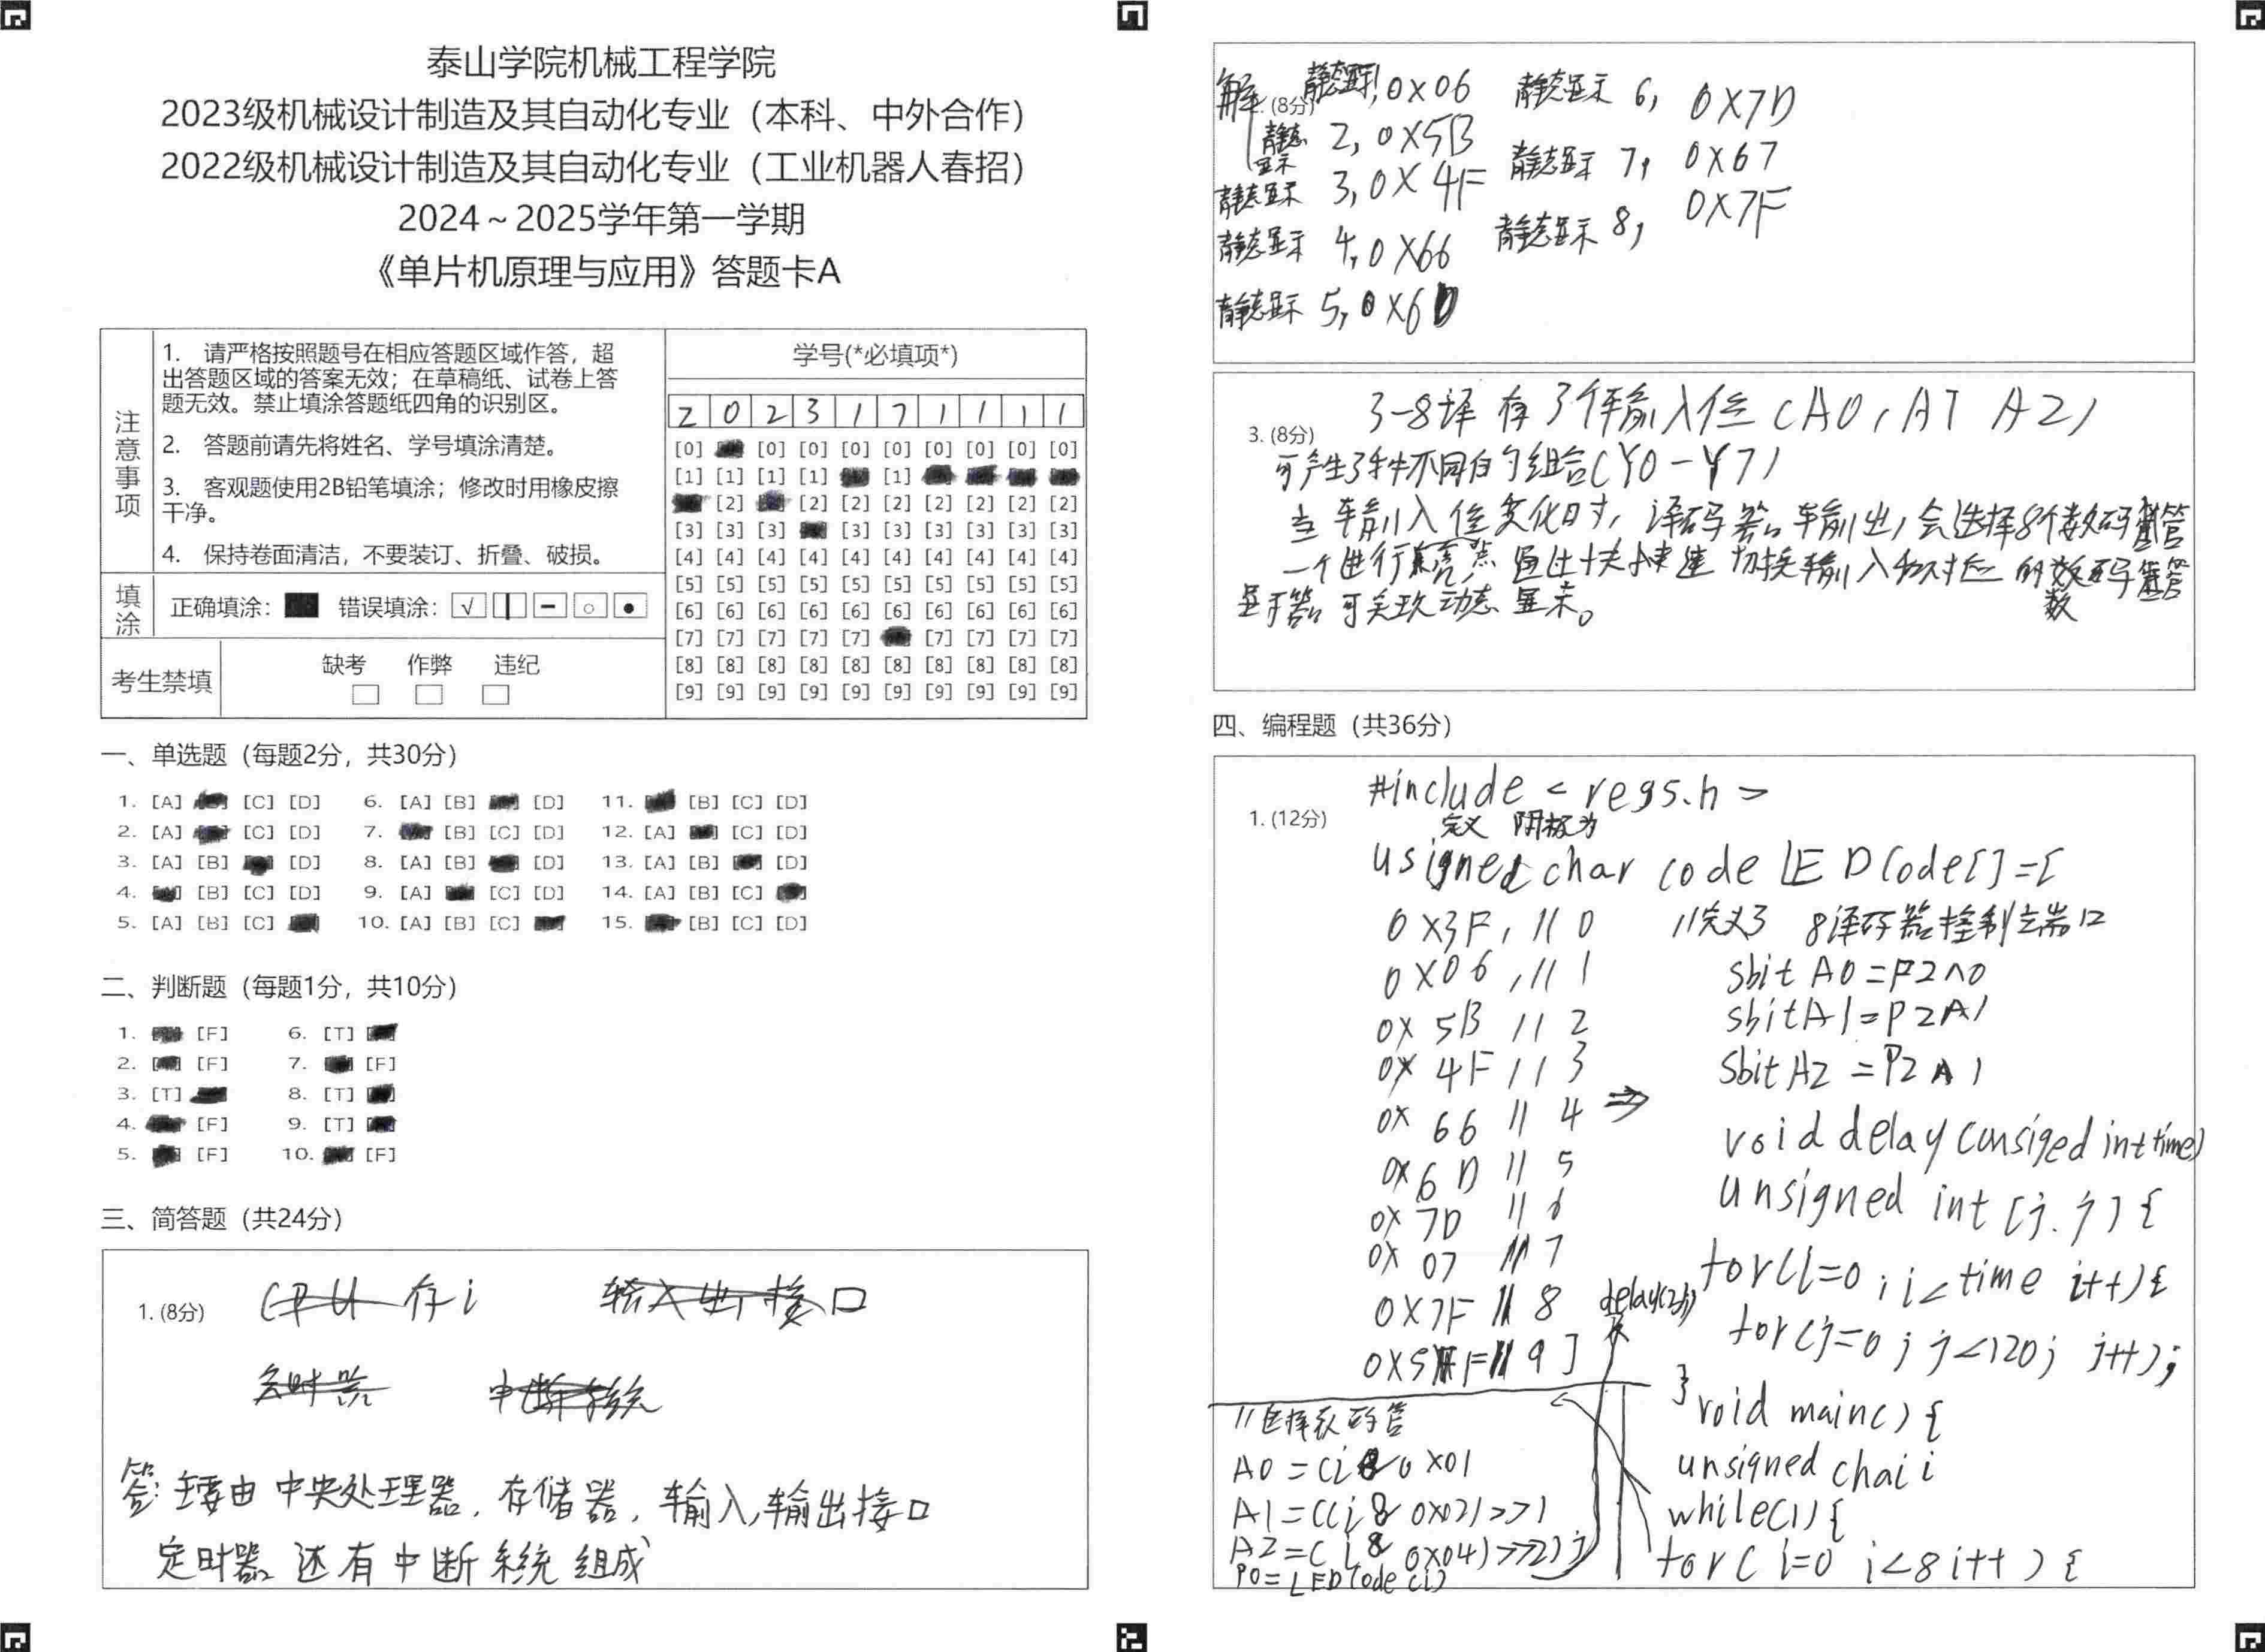 泰山学院机械工程学院
2023级机械设计制造及其自动化专业（本科、中外合作）
2022级机械设计制造及其自动化专业（工业机器人春招）
2024～2025学年第一学期
《单片机原理与应用》答题卡A
注意事项
1. 请严格按照题号在相应答题区域作答，超
出答题区域的答案无效；在草稿纸、试卷上答
题无效。禁止填涂答题纸四角的识别区。
2. 答题前请先将姓名、学号填涂清楚。
3. 客观题使用2B铅笔填涂；修改时用橡皮擦
干净。
4. 保持卷面清洁，不要装订、折叠、破损。
填涂
正确填涂： 错误填涂：
考生禁填
缺考 作弊 违纪
学号(*必填项*)
2 0 2 3 1 7 1 1 1 1
[0] [0] [0] [0] [0] [0] [0] [0] [0]
[1] [1] [1] [1] [1]
[2] [2] [2] [2] [2] [2] [2] [2]
[3] [3] [3] [3] [3] [3] [3] [3] [3]
[4] [4] [4] [4] [4] [4] [4] [4] [4] [4]
[5] [5] [5] [5] [5] [5] [5] [5] [5] [5]
[6] [6] [6] [6] [6] [6] [6] [6] [6] [6]
[7] [7] [7] [7] [7] [7] [7] [7] [7]
[8] [8] [8] [8] [8] [8] [8] [8] [8] [8]
[9] [9] [9] [9] [9] [9] [9] [9] [9] [9]
一、单选题（每题2分，共30分）
1. [A] [C] [D] 6. [A] [B] [D] 11. [B] [C] [D]
2. [A] [C] [D] 7. [B] [C] [D] 12. [A] [C] [D]
3. [A] [B] [D] 8. [A] [B] [D] 13. [A] [B] [D]
4. [B] [C] [D] 9. [A] [C] [D] 14. [A] [B] [C]
5. [A] [B] [C] 10. [A] [B] [C] 15. [B] [C] [D]
二、判断题（每题1分，共10分）
1. [F] 6. [T]
2. [F] 7. [F]
3. [T] 8. [T]
4. [F] 9. [T]
5. [F] 10. [F]
三、简答题（共24分）
1. (8分)
CPU 存i 输入出接口
定时器 中断系统
答：主要由中央处理器，存储器，输入，输出接口
定时器 还有中断系统组成
解 (8分) 静态显示1，0X06 静态显示 6， 0X7D
静态显示 2，0X5B 静态显示 7， 0X67
静态显示 3，0X4F 静态显示 8， 0X7F
静态显示 4，0X66
静态显示 5，0X6D
3. (8分) 3-8译 有3个输入位（A0，A1 A2）
可产生3种不同的组合（Y0-Y7）
当输入位变化时，译码器输出，会选择8个数码管
一个进行点亮，通过快速 切换输入和对应的数码管
数
显示器可实现动态显示。
四、编程题（共36分）
1. (12分) #include < regs.h >
定义 阴极为
usigned char code LEDCode[]=[
0X3F，//0
0X06，//1
0X5B //2
0X4F //3
0X66 //4
0X6D //5
0X7D //6
0X07 //7
0X7F //8
0X5F //9]
//定义3 8译存器控制端口
sbit A0=P2^0
sbit A1=P2^1
sbit A2=P2^1
void delay(unsiged int time)
unsigned int [j.j]{
for(i=0；i<time i++){
for(j=0；j<120；j++)；
}
void main(){
unsigned chai i
while(1){
for( i=0 i<8 i++ ){
//选择数码管
A0=(i&0x01
A1=((i&0x02)>>1
A2=(i&0x04)>>2);
P0=LEDCode(i)